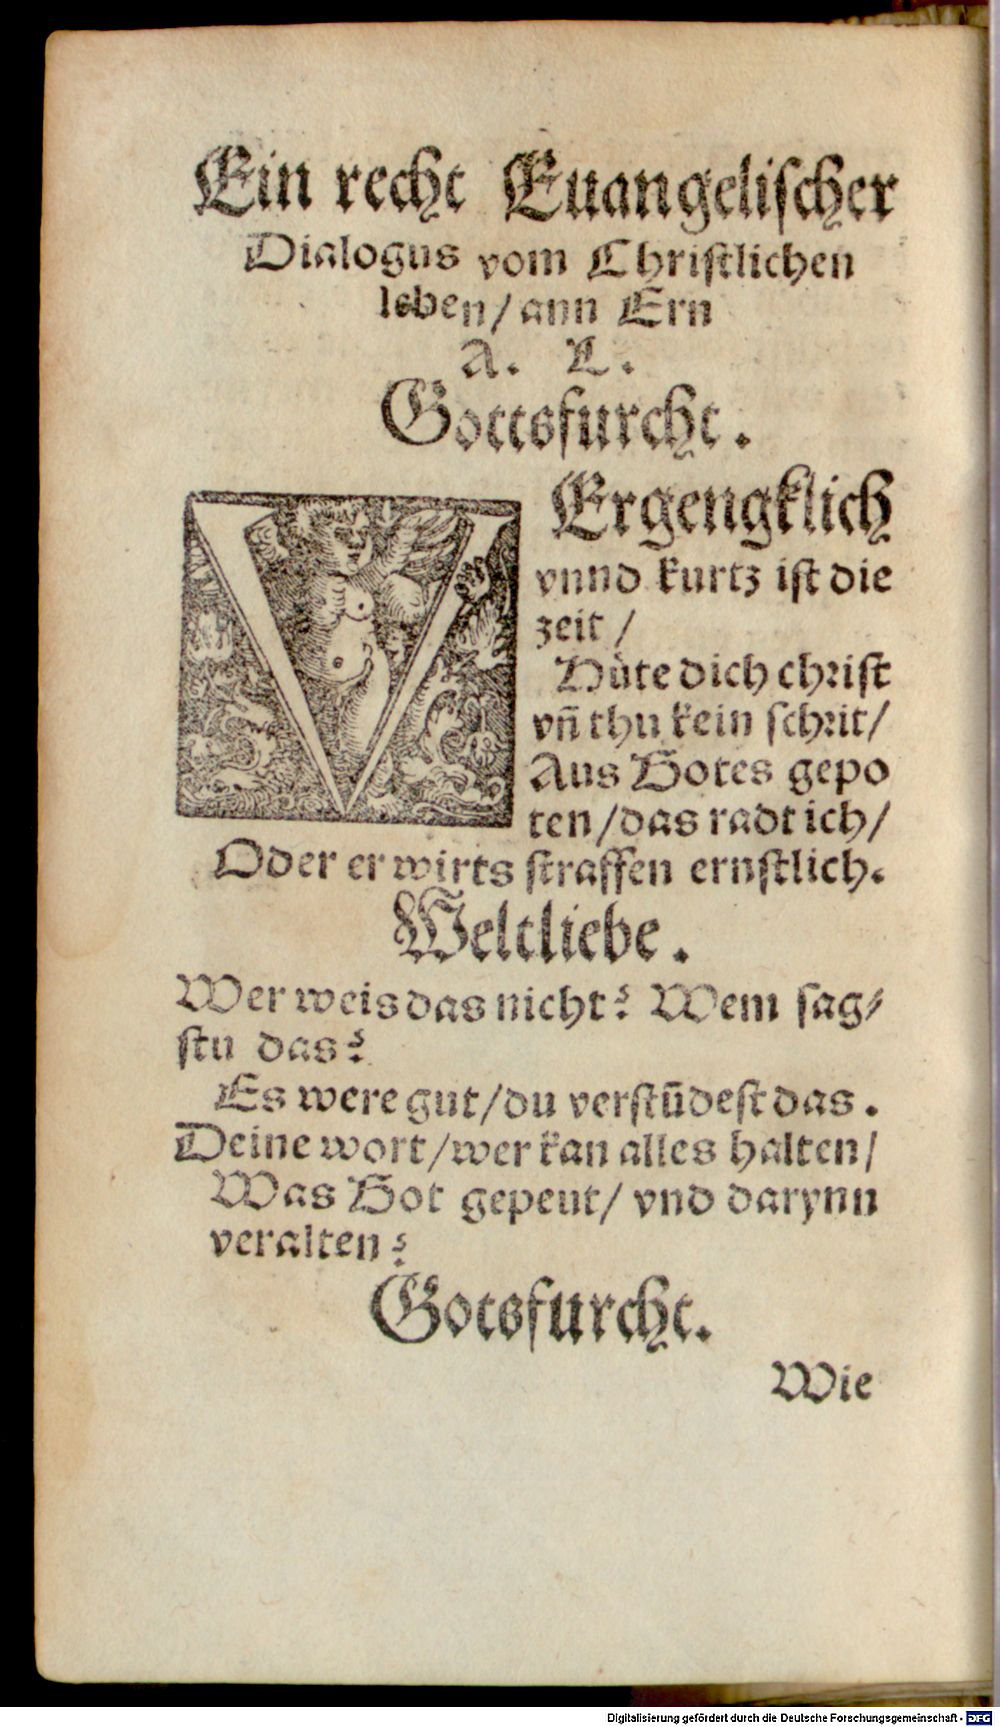 Ein recht Euangelischer
Dialogus vom Christlichen
leben/ ann Ern
A. L.
Gottsfurcht.
VErgengklich
vnnd kurtz ist die
zeit /
Hüte dich christ
vñ thu kein schrit/
Aus Gotes gepo
ten/das radt ich/
Oder er wirts straffen ernstlich.
Weltliebe.
Wer weis das nicht? Wem sag⸗
stu das?
Es were gut/du verstūdest das.
Deine wort/wer kan alles halten/
Was Got gepeut/ vnd darynn
veralten?
Gotsfurcht.
Wie
Digitalisierung gefördert durch die Deutsche Forschungsgemeinschaft - DFG